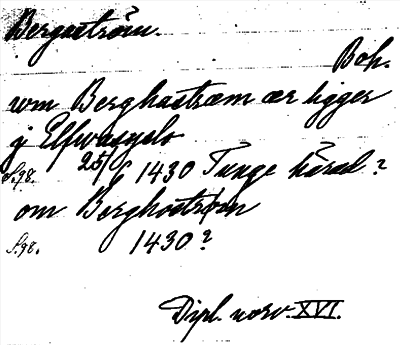 Bergaström.
Boh.
um Berghastrœm œr ligger
j Elfwasyslo
S. 98. 25/8 1430 Tunge härad?
om Berghostrøm
S. 98. 1430?
Dipl. norv. XVI.